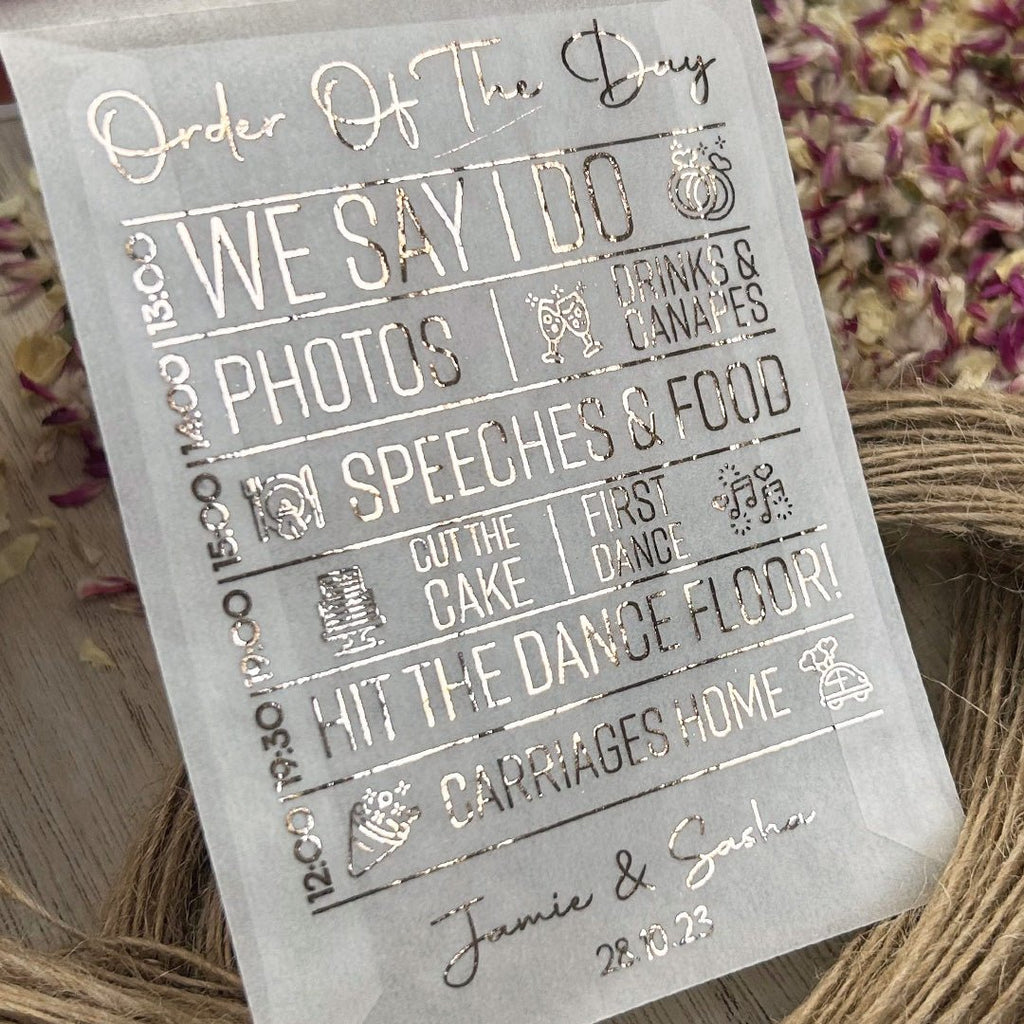 Order Of The Day
13:00 WE SAY I DO
14:00 PHOTOS DRINKS & CANAPES
15:00 SPEECHES & FOOD
19:00 CUT THE CAKE FIRST DANCE
19:30 HIT THE DANCE FLOOR!
12:00 CARRIAGES HOME
Jamie & Sasha
28.10.23